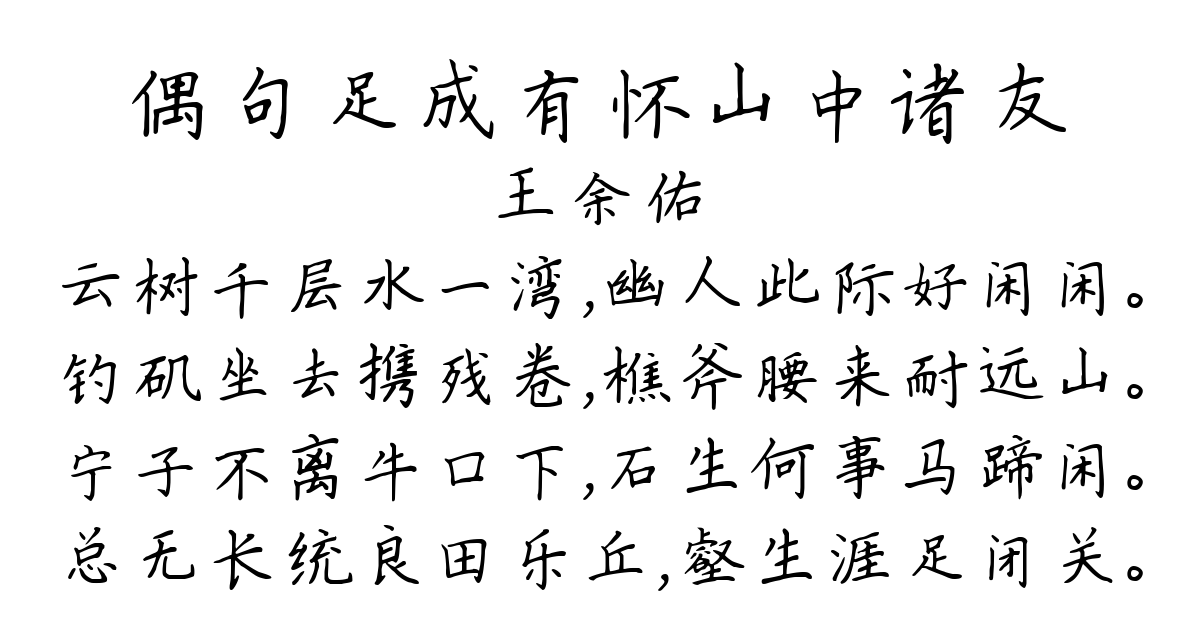 偶句足成有怀山中诸友
王余佑
云树千层水一湾,幽人此际好闲闲。
钓矶坐去携残卷,樵斧腰来耐远山。
宁子不离牛口下,石生何事马蹄闲。
总无长统良田乐丘,壑生涯足闭关。